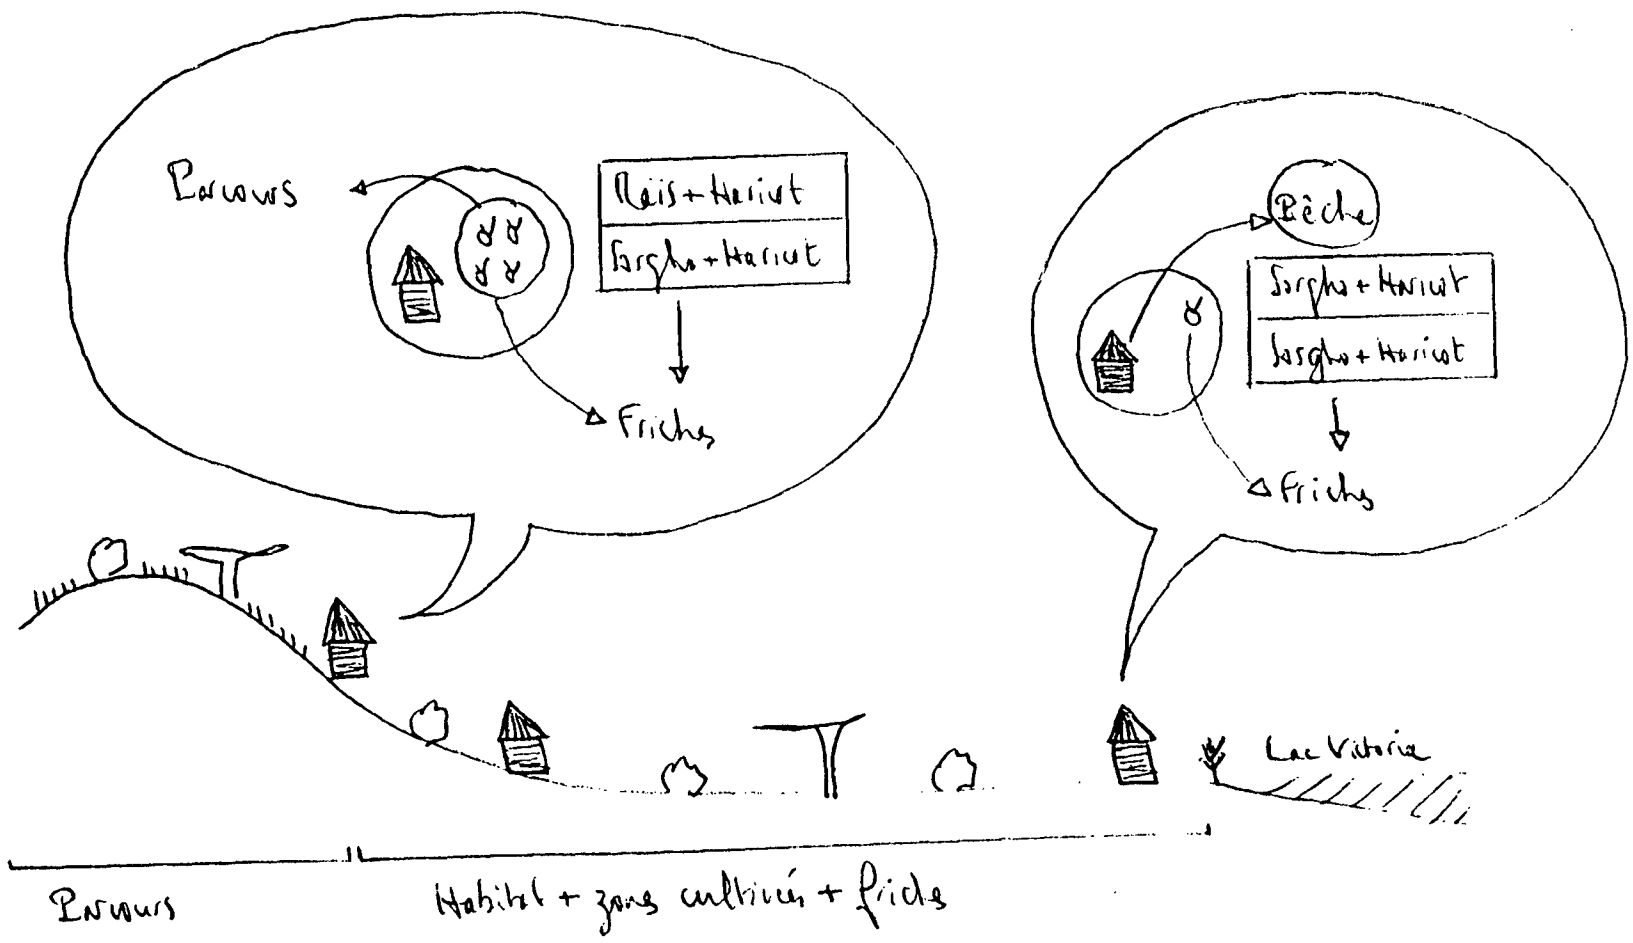 Parcours
Maïs + Haricot
Sorgho + Haricot
Friches
Pêche
Sorgho + Haricot
Sorgho + Haricot
Friches
Lac Victoria
Parcours
Habitat + zones cultivées + friches